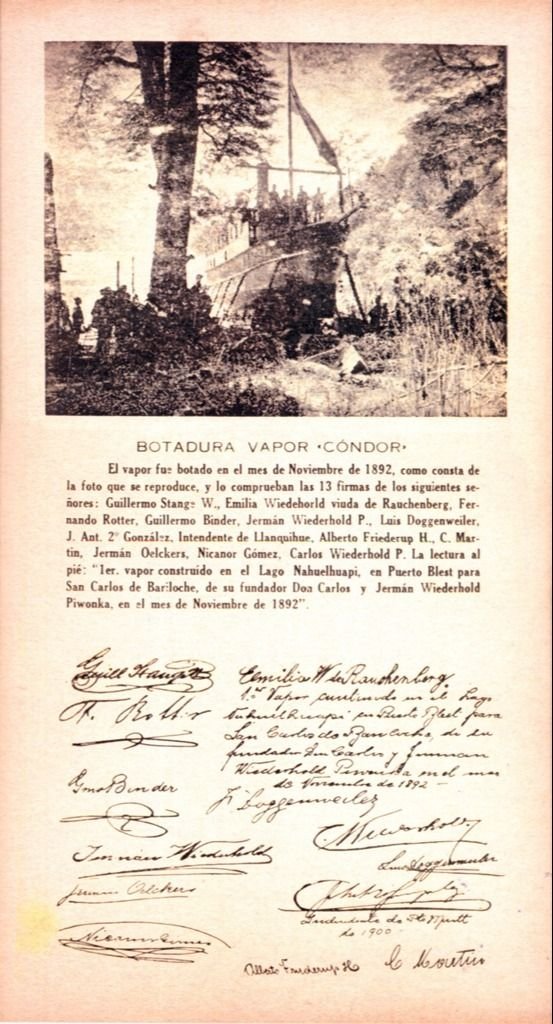 BOTADURA VAPOR «CÓNDOR»
El vapor fue botado en el mes de Noviembre de 1892, como consta de
la foto que se reproduce, y lo comprueban las 13 firmas de los siguientes se-
ñores: Guillermo Stange W., Emilia Wiedehorld viuda de Rauchenberg, Fer-
nando Rotter, Guillermo Binder, Jermán Wiederhold P., Luis Doggenweiler,
J. Ant. 2º González, Intendente de Llanquihue, Alberto Friederup H., C. Mar-
tin, Jermán Oelckers, Nicanor Gómez, Carlos Wiederhold P. La lectura al
pié: "1er. vapor construído en el Lago Nahuelhuapi, en Puerto Blest para
San Carlos de Bariloche, de su fundador Don Carlos y Jermán Wiederhold
Piwonka, en el mes de Noviembre de 1892".
Guill Stange W
F. Rotter
Gmo Binder
Jerman Wiederhold
Jerman Oelckers
Nicanor Gomez
Emilia W. de Rauchenberg
1er Vapor construido en el Lago
Nahuelhuapi en Puerto Blest para
San Carlos de Bariloche, de su
fundador Don Carlos y Jerman
Wiederhold Piwonka en el mes
de Noviembre de 1892 –
F. Doggenweiler
C Wiederhold
Luis Doggenweiler
Intendente de Pto Montt
de 1900
Alberto Friederup H
C Martin